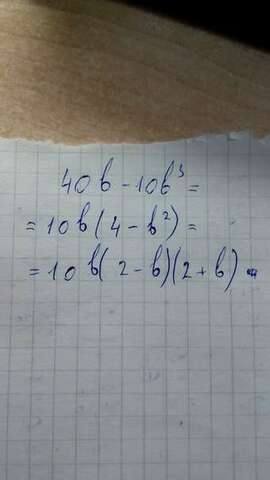 40b - 10b³ =
= 10b(4 - b²) =
= 10b(2 - b)(2 + b)